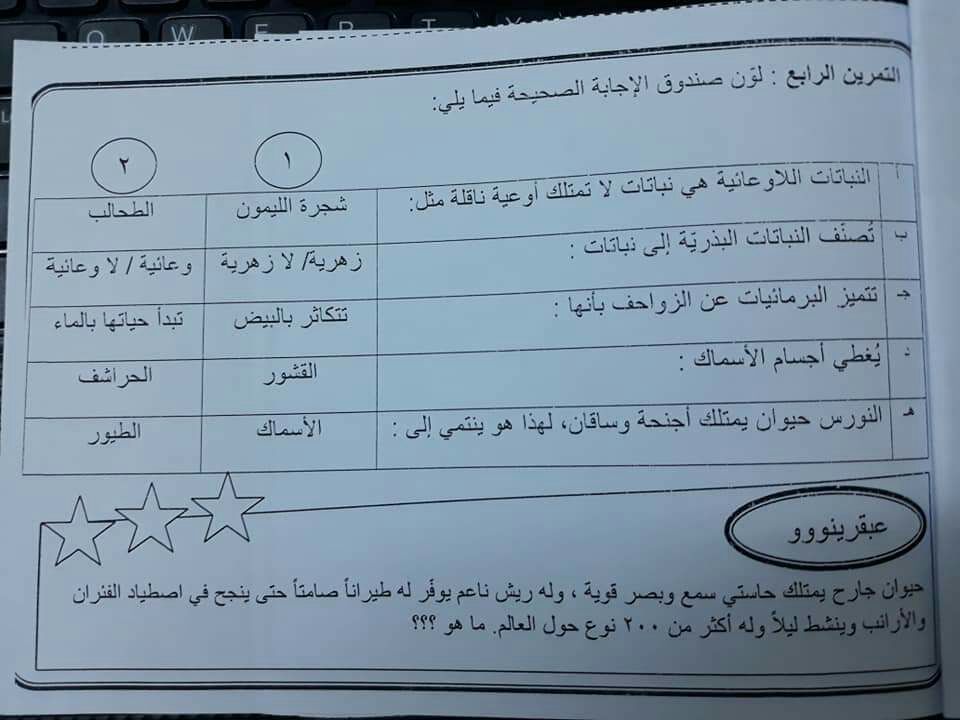 Q W E R T Y
التمرين الرابع : لوّن صندوق الإجابة الصحيحة فيما يلي:
١ ٢
أ النباتات اللاوعائية هي نباتات لا تمتلك أوعية ناقلة مثل: شجرة الليمون الطحالب
ب تُصنّف النباتات البذريّة إلى نباتات : زهرية/ لا زهرية وعائية / لا وعائية
جـ تتميز البرمائيات عن الزواحف بأنها : تتكاثر بالبيض تبدأ حياتها بالماء
د يُغطي أجسام الأسماك : القشور الحراشف
هـ النورس حيوان يمتلك أجنحة وساقان، لهذا هو ينتمي إلى : الأسماك الطيور
عبقرينووو
حيوان جارح يمتلك حاستي سمع وبصر قوية ، وله ريش ناعم يوفّر له طيراناً صامتاً حتى ينجح في اصطياد الفئران
والأرانب وينشط ليلاً وله أكثر من ٢٠٠ نوع حول العالم. ما هو ؟؟؟